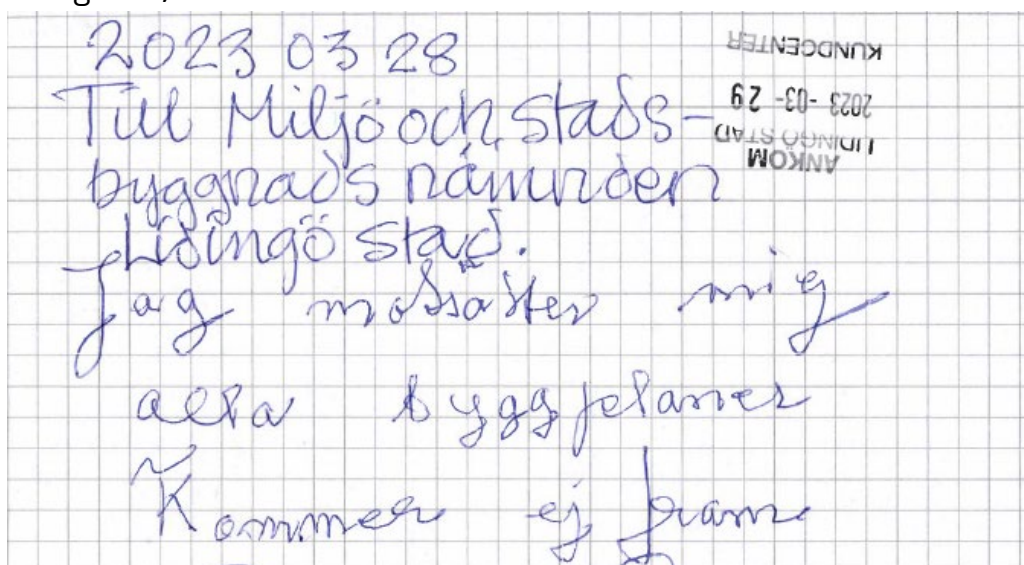 2023 03 28
Till Miljö och stads-
byggnads nämnden
Lidingö stad.
Jag motsätter mig
alla byggplaner
Kommer ej fram
ANKOM
LIDINGÖ STAD
2023 -03- 29
KUNDCENTER